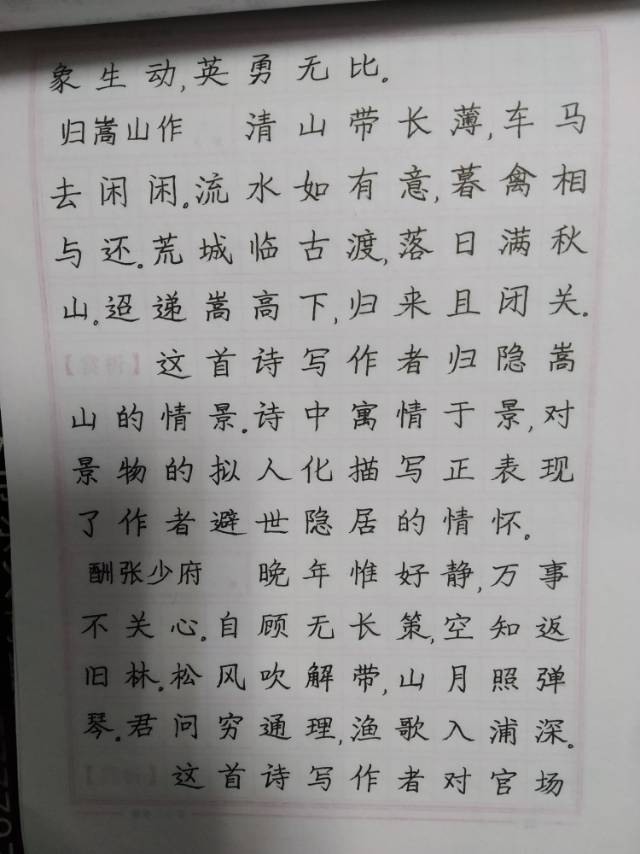 象生动,英勇无比。
归嵩山作 清山带长薄,车马
去闲闲。流水如有意,暮禽相
与还。荒城临古渡,落日满秋
山。迢递嵩高下,归来且闭关。
这首诗写作者归隐嵩
山的情景。诗中寓情于景,对
景物的拟人化描写正表现
了作者避世隐居的情怀。
酬张少府 晚年惟好静,万事
不关心。自顾无长策,空知返
旧林。松风吹解带,山月照弹
琴。君问穷通理,渔歌入浦深。
这首诗写作者对官场